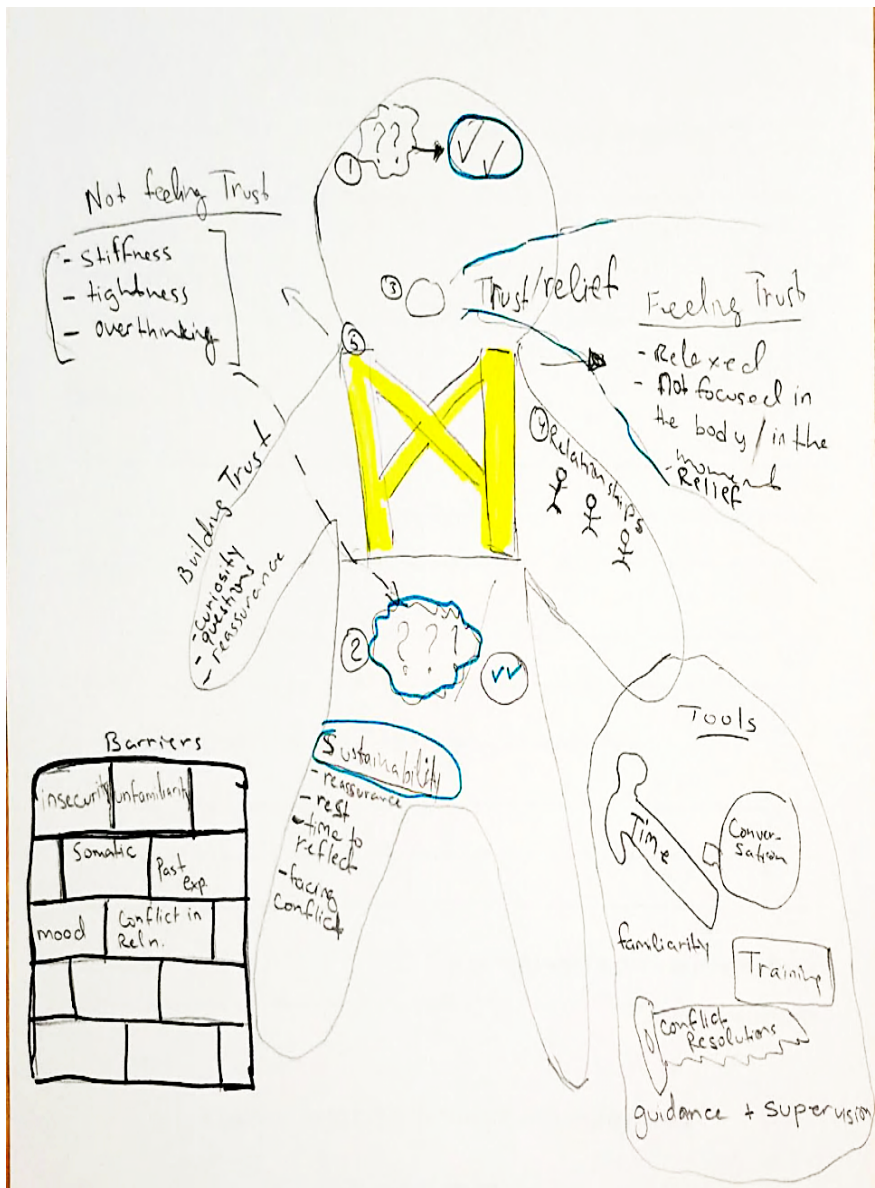 ① ?? ✓✓
Not feeling Trust
- Stiffness
- tightness
- overthinking
③ Trust/relief
Feeling Trust
- Relaxed
- Not focused in
the body / in the
moment
- Relief
⑤
④ Relationships
Building Trust
- curiosity
- questions
- reassurance
② ??? ✓✓
Sustainability
- reassurance
- rest
- time to
reflect
- facing
conflict
Barriers
insecurity unfamiliarity
Somatic
Past
exp.
mood
Conflict in
Reln.
Tools
Time
Conver-
sation
familiarity
Training
Conflict
Resolutions
guidance + supervision